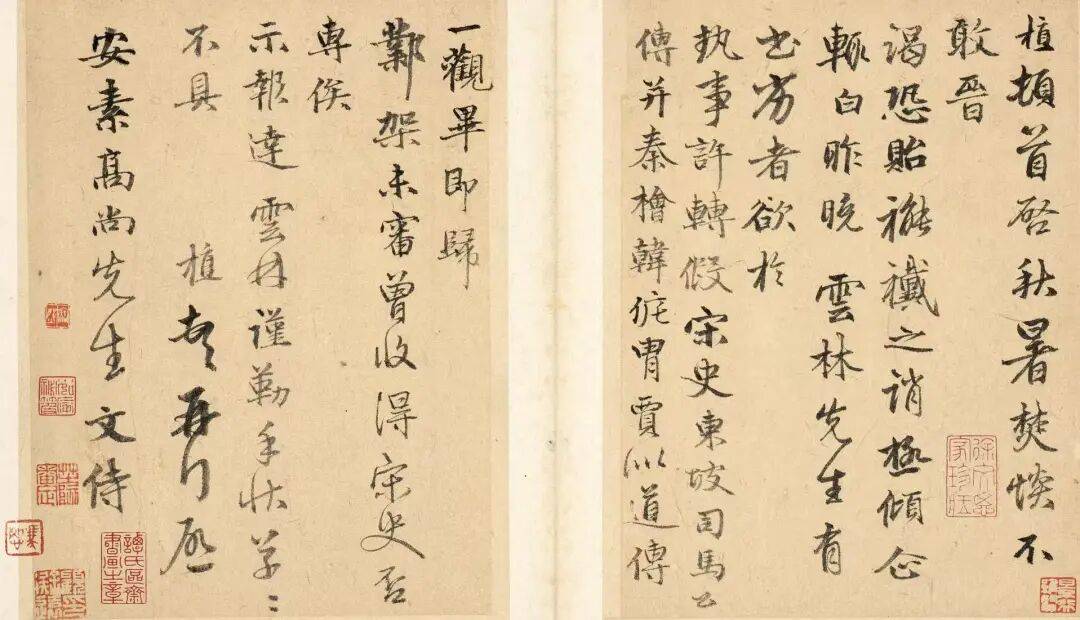 植頓首啓秋暑焚惔不
敢晉
謁恐貽褦襶之誚極傾企
輒白昨晚雲林先生有
者欲於
執事許轉假宋史東坡司馬公
傳并秦檜韓侂冑賈似道傳
一觀畢即歸
鄴架未審曾收得宋史否
專俟
示報達雲林謹勒手狀草〻
不具 植頓首再拜啓
安素高尚先生 文侍
譚氏區齋書畫之章